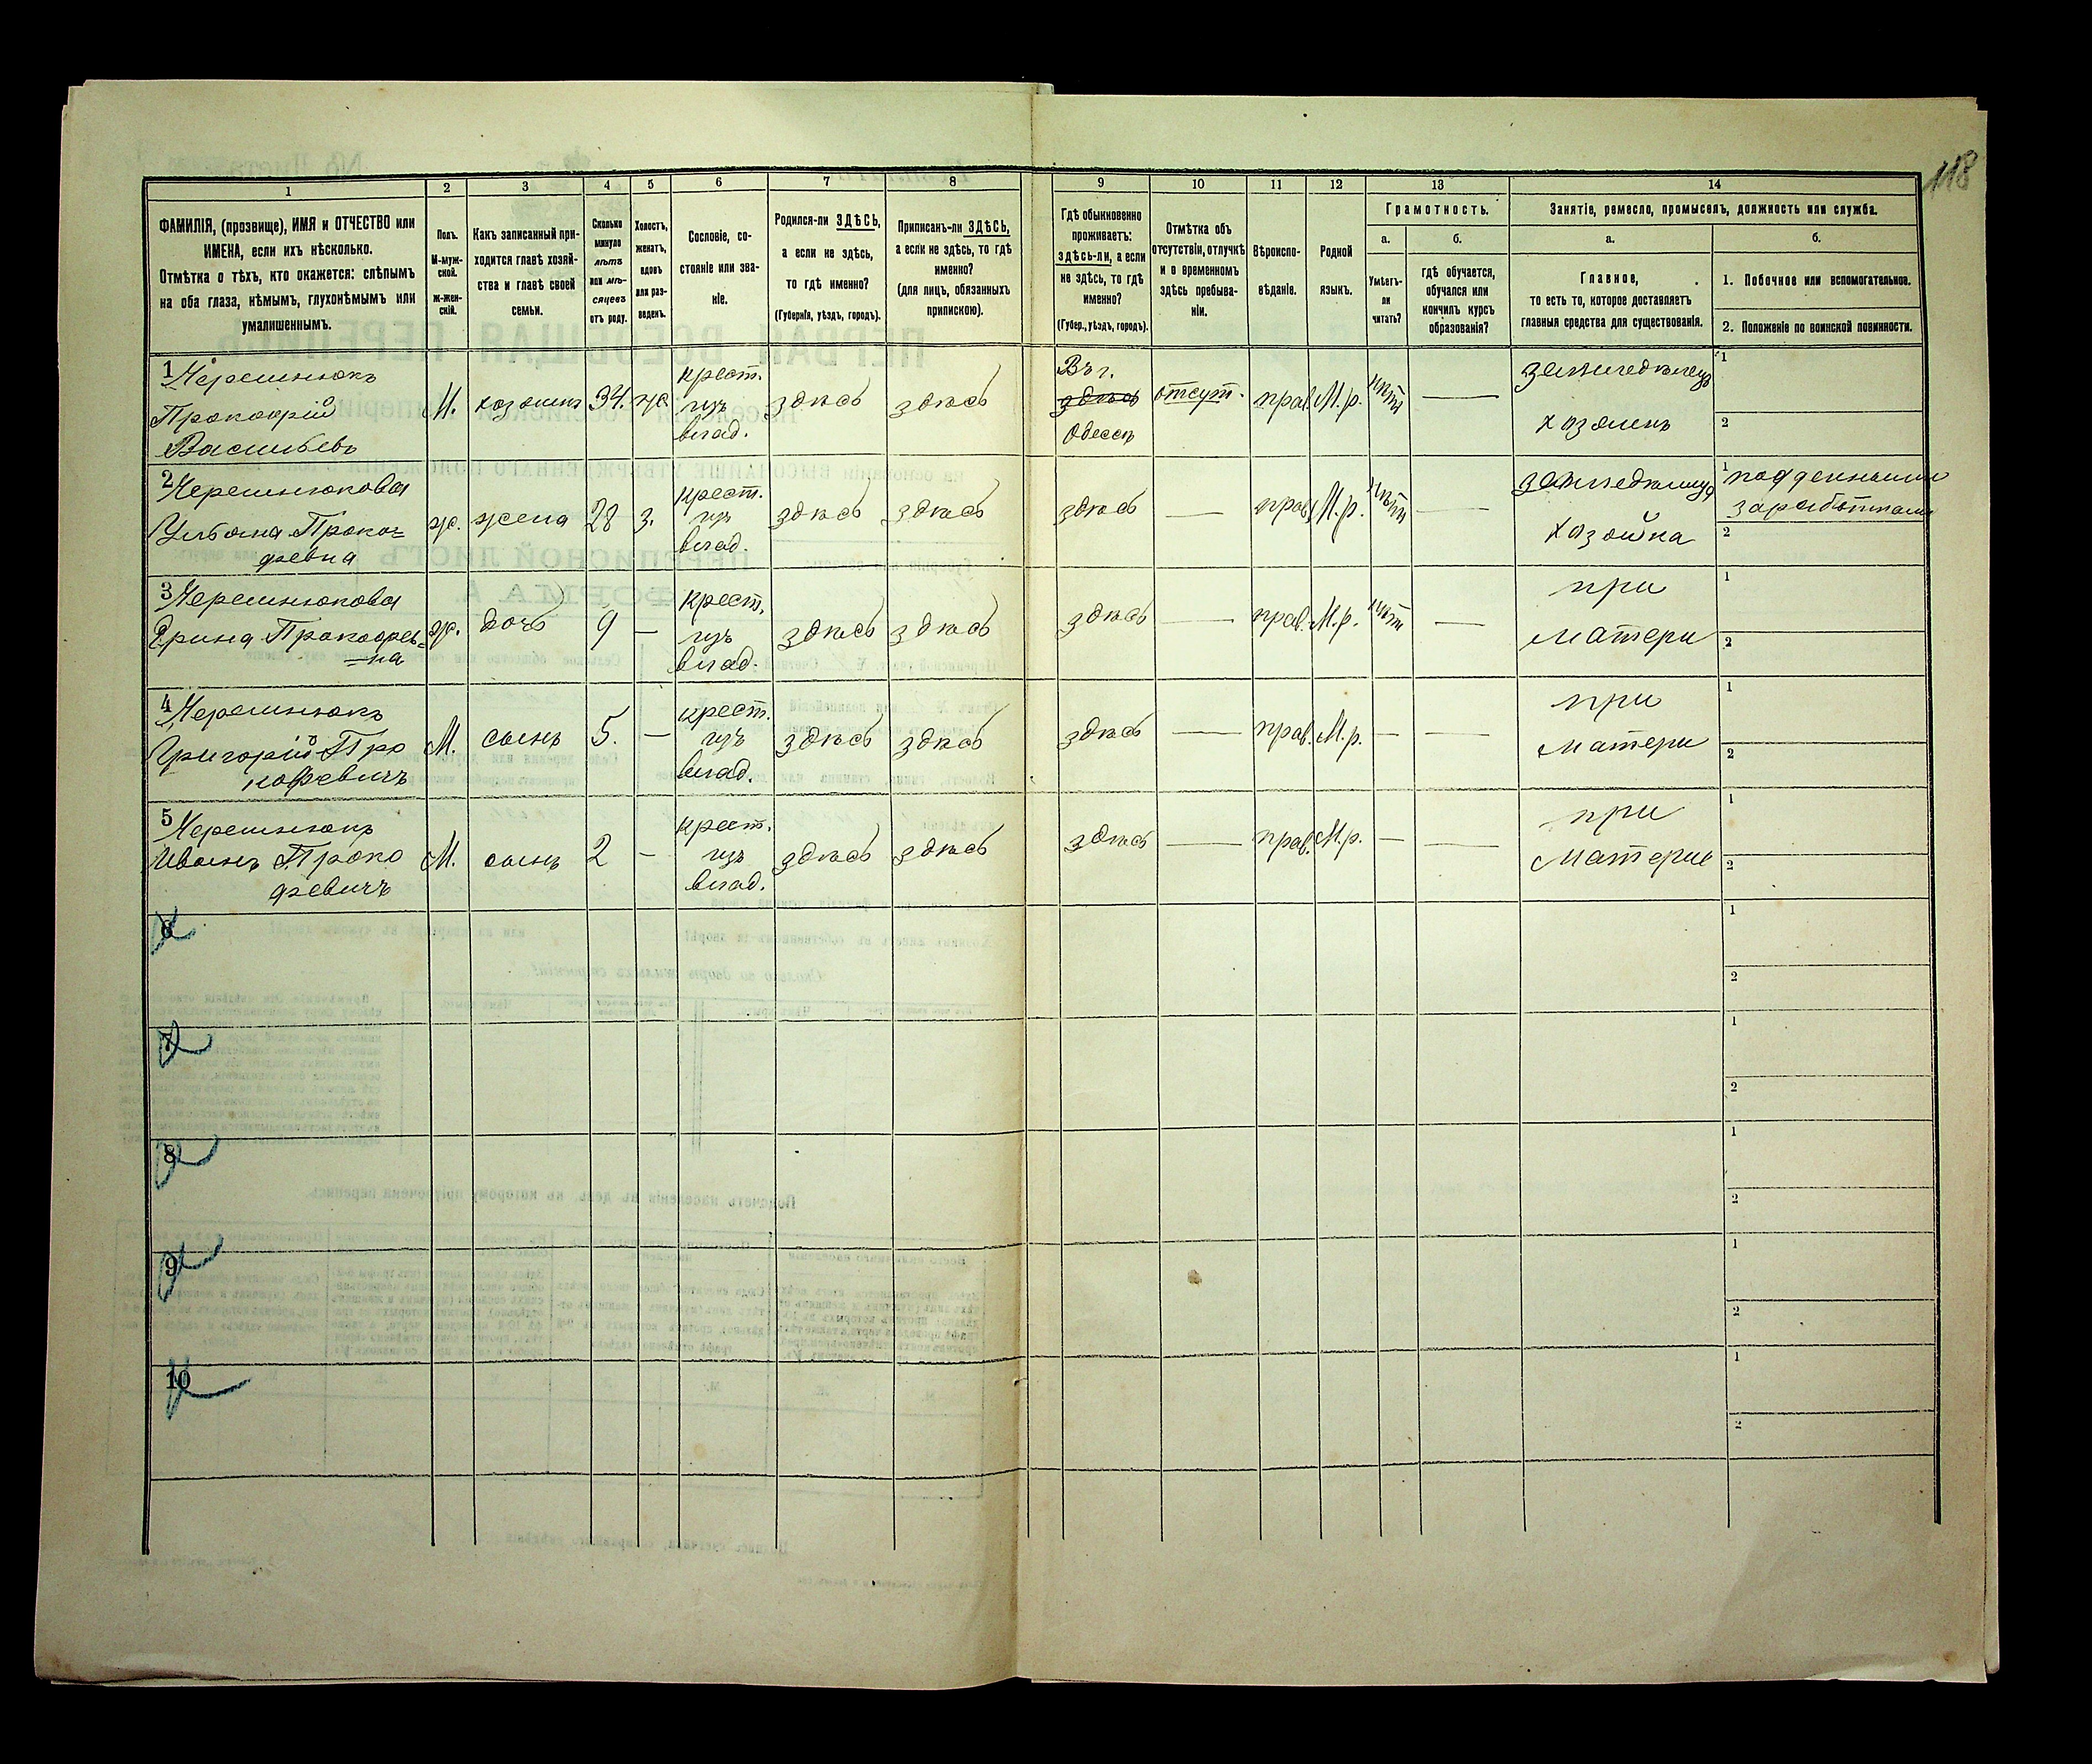 118
1
2
3
4
5
6
7
8
9
10
11
12
13
14
ФАМИЛІЯ, (прозвище), ИМЯ и ОТЧЕСТВО или
ИМЕНА, если ихъ нѣсколько.
Отмѣтка о тѣхъ, кто окажется: слѣпымъ
на оба глаза, нѣмымъ, глухонѣмымъ или
умалишеннымъ.
Полъ.
М-муж-
ской.
ж-жен-
скій.
Какъ записанный при-
ходится главѣ хозяй-
ства и главѣ своей
семьи.
Сколько
минуло
лѣтъ
или мѣ-
сяцевъ
отъ роду.
Холостъ,
женатъ,
вдовъ
или раз-
веденъ.
Сословіе, со-
стояніе или зва-
ніе.
Родился-ли ЗДѢСЬ,
а если не здѣсь,
то гдѣ именно?
(Губернія, уѣздъ, городъ).
Приписанъ-ли ЗДѢСЬ,
а если не здѣсь, то гдѣ
именно?
(для лицъ, обязанныхъ
припискою).
Гдѣ обыкновенно
проживаетъ:
здѣсь-ли, а если
не здѣсь, то гдѣ
именно?
(Губер., уѣздъ, городъ).
Отмѣтка объ
отсутствіи, отлучкѣ
и о временномъ
здѣсь пребыва-
ніи.
Вѣроиспо-
вѣданіе.
Родной
языкъ.
Грамотность.
а.
Умѣетъ-
ли
читать?
б.
гдѣ обучается,
обучался или
кончилъ курсъ
образованія?
Занятіе, ремесло, промыселъ, должность или служба.
а.
Главное,
то есть то, которое доставляетъ
главныя средства для существованія.
б.
1. Побочное или вспомогательное.
2. Положеніе по воинской повинности.
1 Черешнюкъ
Прокофій
Васильевъ
М.
хозяинъ
34.
ж.
крест.
изъ
влад.
здѣсь
здѣсь
Въ г.
здѣсь
Одессѣ
отсут.
прав.
М.р.
нѣтъ
—
земледѣлецъ
хозяинъ
1
2
2 Черешнюкова
Ульяна Проко=
фьевна
ж.
жена
28
з.
крест.
изъ
влад.
здѣсь
здѣсь
здѣсь
—
прав.
М.р.
нѣтъ
—
хозяйка
1 подденными
заработками
2
3 Черешнюкова
Ярина Прокофьев=
=на
ж.
дочь
9
—
крест.
изъ
влад.
здѣсь
здѣсь
здѣсь
—
прав.
М.р.
нѣтъ
—
при
матери
1
2
4 Черешнюкъ
Григорій Про
кофьевичъ
М.
сынъ
5.
—
крест.
изъ
влад.
здѣсь
здѣсь
здѣсь
—
прав.
М.р.
—
—
при
матери
1
2
5 Черешнюкъ
Иванъ Проко
фьевичъ
М.
сынъ
2
—
крест.
изъ
влад.
здѣсь
здѣсь
здѣсь
—
прав.
М.р.
—
—
при
матери
1
2
6
1
2
7
1
2
8
1
2
9
1
2
10
1
2